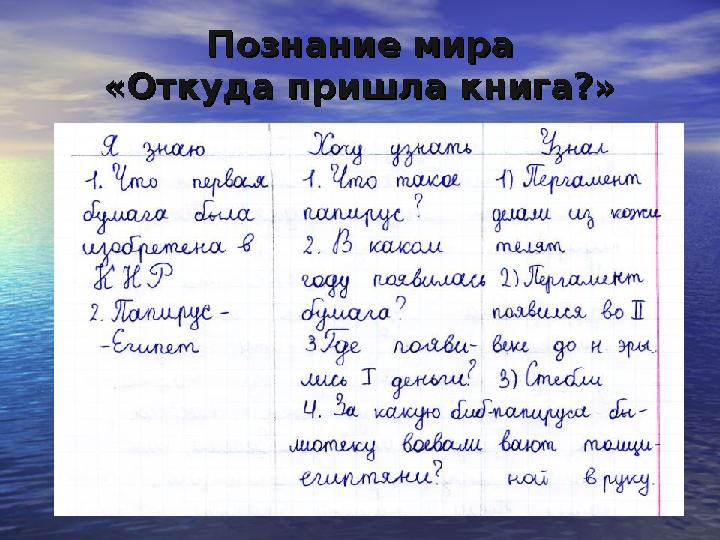 Познание мира
«Откуда пришла книга?»
Я знаю
1. Что первая
бумага была
изобретена в
КНР
2. Папирус -
- Египет
Хочу узнать
1. Что такое
папирус?
2. В каком
году появилась
бумага?
3 Где появи-
лись I деньги?
4. За какую биб-
лиотеку воевали
египтяни?
Узнал
1) Пергамент
делали из кожи
телят
2) Пергамент
появился во II
веке до н эры.
3) Стебли
папируса бы-
вают толщи-
ной в руку.